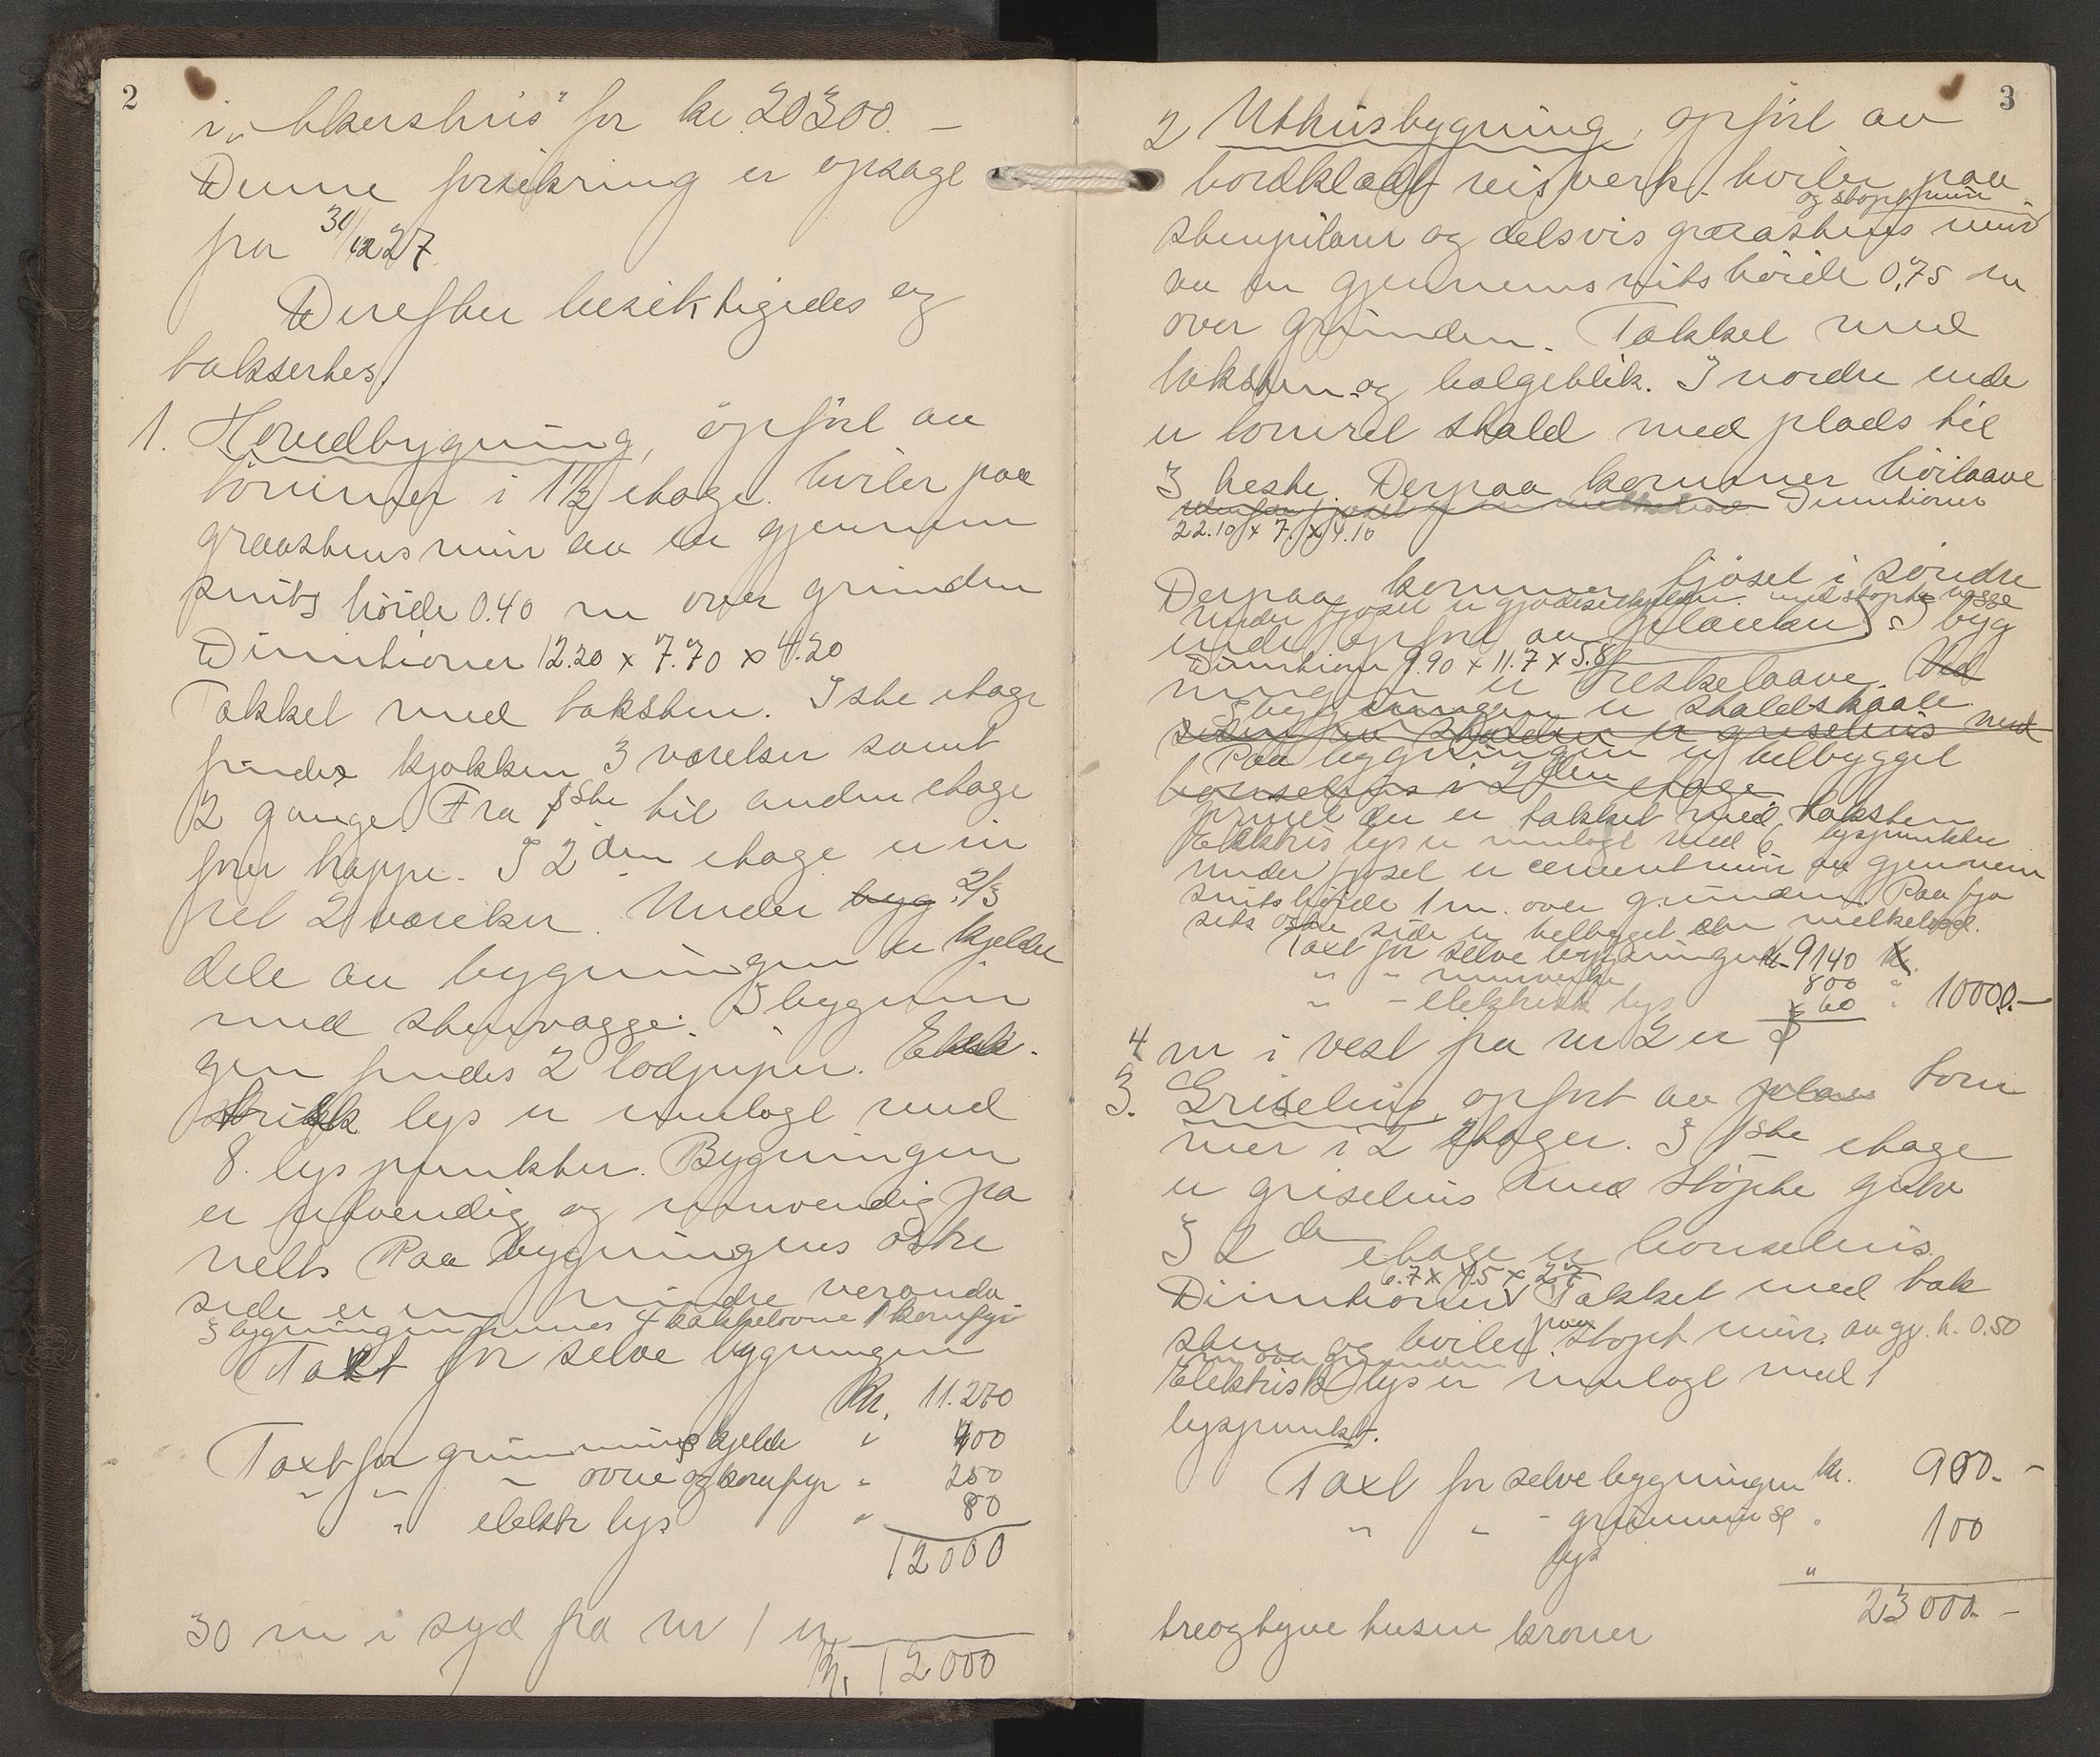 2
i „Akershus" for kr 20300.–
Denne forsikring er opsagt
fra 31/12 27
Derefter besiktigedes og
taksertes.
1. Hovedbygning, opført av
tømmer i 1½ etage. hviler paa
graastens mur av en gjennem
snits høide 0.40 m over grunden
Dimitioner 12.20 x 7.70 x 4.20
Takket med taksten. I ste etage
findes kjøkken 3 værelser samt
2 gange. Fra 1ste til anden etage
fører trappe. I 2den etage er in
ret 2 værelser. Under byg 2/3
dele av bygningen er kjelder
med stenvægge. I bygnin
gen findes 2 lodpiper. Elek-
trisk lys er innlagt med
8. lyspunkter. Bygningen
er utvendig og innvendig pa
nelt. Paa bygningens østre
side er en mindre veranda
I bygningen finnes 4 kakkelovne 1 komfyr
Takt for selve bygningen
Kr. 11.270
Taxt for grunnmur og kjelder " 400
" " " ovne og komfyr " 250
" " elektr lys " 80
12000
30 m i syd fra nr 1 er
Kr. 12000
3
2 Uthusbygning, opført av
bordklædt reisverk. hviler paa
og støpt mur
stenpilarer og delsvis graastens mur
av en gjennemsnits høide 0,75 m
over grunden. Takket med
taksten og bølgeblik. I nordre ende
er tømret stald med plads til
3 heste. Derpaa kommer høilaave
Dimitioner
22.10 x 7. x 4.10
Derpaa kommer fjøset i søndre
under fjøset er gjødselkjelder med støpte vægge
ende opført av planker. I byg
Dimitioner 9.90 x 11.7 x 5.8
ningen er treskelaave. Ved
I bygningen er staldskaale
siden av stalden er grisehus med
Paa bygningen er tilbygget
hønsehus i 2den etage
der er takket med taksten
Elektris lys er innlagt med 6 lyspunkter
under fjøset er cementmur av gjennem
snits høide 1 m. over grunden. Paa fjø
sets østre side er tilbygget en melkebod.
Taxt for selve bygningen Kr. 9140 Kr.
" " murverk 800 "
" - elektrisk lys 60 " 10000.–
4 m i vest fra nr 2 er
3. Grisehus, opført av plan tøm
mer i 2 etager. I 1ste etage
er grisehus med støpte gulv
I 2de etage er hønsehus.
6.7 x 4.5 x 2.7
Dimitioner Takket med tak
sten og hviler paa støpt mur. av gj. h. 0.50
m over grunnen
Elektrisk lys er innlagt med 1
lyspunkt.
Taxt for selve bygningen kr. 900.–
" " - grunnmur og " 100
lys
" 23000.–
treogtyve tusen kroner